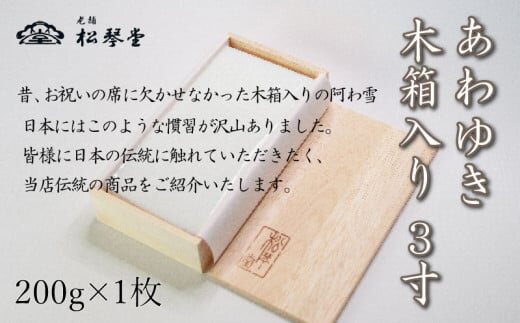 老舗
松琴堂
あわゆき
木箱入り 3寸
昔、お祝いの席に欠かせなかった木箱入りの阿わ雪
日本にはこのような慣習が沢山ありました。
皆様に日本の伝統に触れていただきたく、
当店伝統の商品をご紹介いたします。
200g×1枚
松琴堂